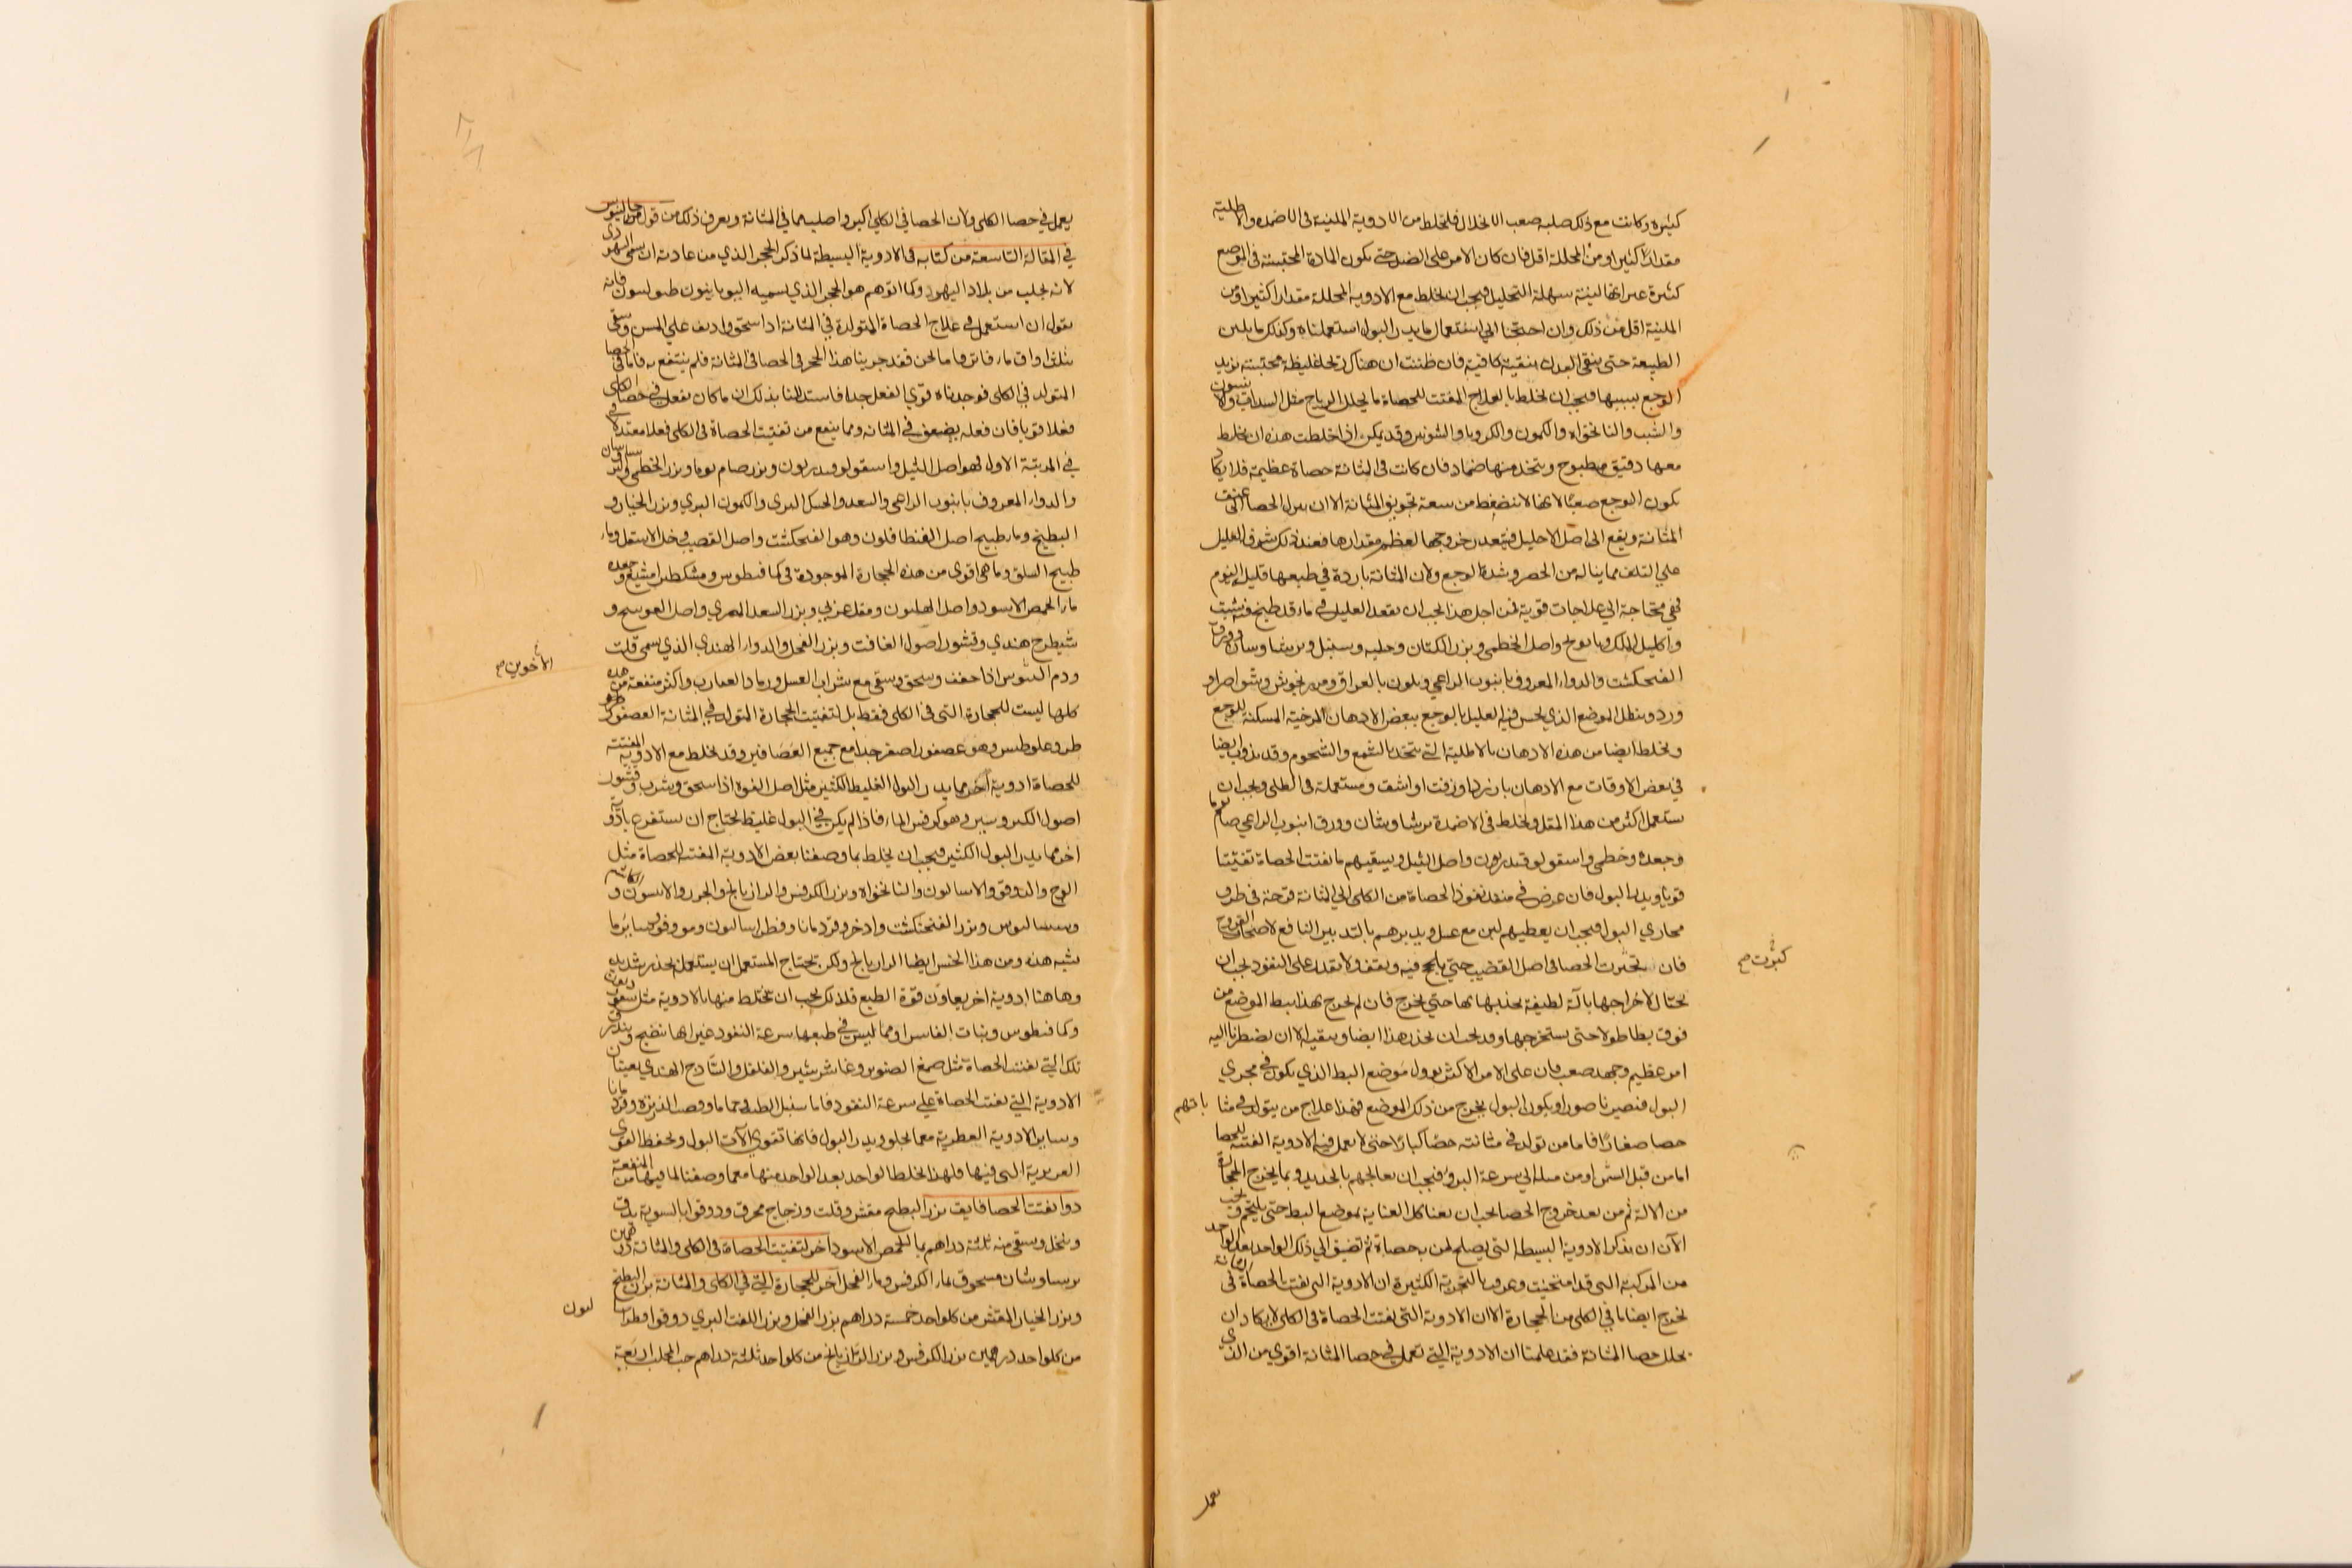 كثيرة وكانت مع ذلك صلبة صعب الانحلال فلتخلط من الادوية الملينة في الاضمدة والاطلية
مقدارا كثيرا ومن المحللة اقل فان كان الامر على الضد حتى تكون المادة المحتبسة في الموضع
كثيرة غير انها لينة سهلة التحليل فيجب ان يخلط مع الادوية المحللة مقدارا كثيرا ومن
الملينة اقل من ذلك وان احتجنا الى استعمال ما يدر البول استعملناه وكذلك ما يلين
الطبيعة حتى ينقى البدن تنقية كافية فان ظننت ان هناك ريحا غليظة محتبسة تزيد
الوجع بسببها فيجب ان تخلط بالعلاج المفتت للحصاة ما يحلل الرياح مثل السداب والانيسون
والشبت والنانخواه والكمون والكرويا والشونيز وقد يمكن اذا خلطت هذه ان يخلط
معها دقيق مطبوخ ويتخذ منها ضماد فان كانت في المثانة حصاة عظيمة فلا يكاد
يكون الوجع صعبا لانها لا تنضغط من سعة تجويف المثانة الا ان ينزل الحصا الى عنق
المثانة ويقع الى اصل الاحليل فيتعذر خروجها لعظم مقدارها فعند ذلك يشرف العليل
على التلف مما يناله من الحصر وشدة الوجع ولان المثانة باردة في طبعها قليلة الدم
فهي محتاجة الى علاجات قوية فمن اجل هذا يجب ان يقعد العليل في ماء قد طبخ فيه شبث
واكليل الملك وبابونج واصل الخطمي وبزر الكتان وحلبه وسنبل وبرشياوشان وورق
الفنجنكشت والدواء المعروف بابنوب الراعي ويكون بالعراق ومرزنجوش وشواصرا و
ورد وينطل الموضع الذي يحس فيه العليل بالوجع ببعض الادهان المرخية المسكنة للوجع
ويخلط ايضا من هذه الادهان بالاطلية التي تتخذ بالشمع والشحوم وقد يذوب ايضا
في بعض الاوقات مع الادهان بارزد او زفت او اشق ومستعملة في الطلى ويجب ان
يستعمل اكثر من هذا المقل ويخلط في الاضمدة برشياوشان وورق ابنوب الراعي صامر يوما
وجعدة وخطمي واسقولوقندريون واصل الثيل ويسقيهم ما يفتت الحصاة تفتيتا
قويا ويدر البول فان عرض في منفذ نفوذ الحصاة من الكلى الى المثانة قرحة في طرف
مجاري البول فيجب ان يعطيهم لبن مع عسل ويدبرهم بالتدبير النافع لاصحاب القروح
فان تحثرت الحصا في اصل القضيب حتى يلحج فيه ويقف ولا يقدر على النفوذ يجب ان
كبرت في صح
يحتال لاخراجها بالة لطيفة يجذبها بها حتى يخرج فان لم يخرج بهذا يبط الموضع من
فوق بطا طولا حتى يستخرجها وقد يجب ان يحذر هذا ايضا ويتقيه الا ان يضطرنا اليه
امر عظيم وجهد صعب فان على الامر الاكثر يؤول موضع البط الذي يكون في مجرى
البول فيصير ناصورا ويكون البول يخرج من ذلك الموضع فهذا علاج من يتولد في مثاناتهم
حصا صغارا فاما من تولد في مثانته حصا كبارا حتى لا يعمل فيه الادوية المفتتة للحصا
اما من قبل السن او من ميله الى سرعة البرؤ فيجب ان يعالجهم بالحديد وبما يخرج الحجارة
من الالة ثم من بعد خروج الحصا يجب ان يعنا كل العناية بموضع البط حتى يلتحم ويجب
الان ان نذكر الادوية البسيطة التي يصلح لمن به حصاة ثم نضيف الى ذلك الواحد بعد الواحد
من المركبة التي قد امتحنت وعرف بالتجربة الكثيرة ان الادوية التي تفتت الحصاة في المثانة
تخرج ايضا ما في الكلى من الحجارة الا ان الادوية التي تفتت الحصاة في الكلى لا يكاد ان
يحلل حصا المثانة فقد علمنا ان الادوية التي تعمل في حصا المثانة اقوى من الذي
يعمل
يعمل في حصا الكلى ولان الحصا في الكلي اكبر واصلب مما في المثانة ويعرف ذلك من قول جالينوس
في المقالة التاسعة من كتابه في الادوية البسيطة لما ذكر الحجر الذي من عادته ان يسمى اليهودي
لانه يجلب من بلاد اليهود وكما اتوهم هو الحجر الذي يسميه اليونانيون طيوليثون فانه
يقول ان استعمل في علاج الحصاة المتولدة في المثانة اذا سحق واديف على المسن وسقى
بثلث اواق ماء فاتر فاما نحن فقد جربنا هذا الحجر في الحصا في المثانة فلم ينتفع به فاما في الحصا
المتولد في الكلى فوجدناه قوي الفعل جدا فاستدللنا بذلك ان ما كان يفعل في حصا الكلى
فعلا قويا فان فعله يضعف في المثانه ومما ينفع من تفتيت الحصاة في الكلى فعلا معتدلا
في المرتبة الاولى فهو اصل الثيل واسقولوقندريون وبزر صامر يوما وبزر الخطمي وبرسياوشان
والدواء المعروف بابنوب الراعي والسعد والحسك البري والكمون البري وبزر الخيار و
البطيخ وماء طبيخ اصل البنطافلون وهو الفنجنكشت واصل القصب وخل الاسقيل وماء
طبيخ السلق وما هي اقوى من هذه الحجارة الموجودة في كمافيطوس ومشكطرامشيع وجعده
ماء الحمص الاسود واصل الهليون ومقل عربي وبزر السعد المصري واصل العوسج و
شيطرج هندي وقشور اصول الغافت وبزر الفجل والدواء الهندي الذي يسمى قلت
الاخوين صح
ودم التيوس اذا جفف وسحق وسقي مع شراب العسل ورماد العقارب واكثر منفعة من هذه
كلها ليست للحجارة التي في الكلى فقط بل لتفتيت الحجارة المتولد في المثانة العصفور
طروغلوطيس وهو عصفور اصغر جدا مع جميع العصافير وقد يخلط مع الادوية المفتتة
للحصاة ادوية اخر مما يدر البول الغليظ الكثير مثل اصل الفوه اذا سحق وشرب وقشور
اصول الكبر وسيبر وهو كرفس الماء فاذا لم يكن في البول غليظ يحتاج ان يستفرغ بادوية
اخر مما يدر البول الكثير فيجب ان يخلط بما وصفنا بعض الادوية المفتتة للحصاة مثل
الوج والدوقو والاسارون والنانخواه وبزر الكرفس والرازيانج والجزر والانيسون و
وسيساليوس وبزر الفنجنكشت واذخر وقردمانا وفطراساليون ومو وفو وساير ما
يشبه هذه ومن هذا الجنس ايضا الرازيانج ولكن يحتاج المستعمل ان يستعمله بحذر شديد
وهاهنا ادوية اخر يعاون قوة الطبع فلذلك يجب ان تختلط منها بالادوية مثل
وكمافيطوس ونبات الفاسرا ومما ليس في طبعها سرعة النفوذ غير انها تنضج و
تلك التي تفتت الحصاة مثل صمغ الصنوبر وغاشرشير والفلفل والساذج الهندي يعينان
الادوية التي تفتت الحصاة على سرعة النفوذ فاما سنبل الطيب وحماما وقصب الذريرة وقردمانا
وساير الادوية العطرية مع ما يجلو ويدر البول فانها تقوي الات البول ويحفظ القوى
الغريزية التي فيها فلهذا تخلط الواحد بعد الواحد منها مع ما وصفنا لما فيها من المنفعة
دوا يفتت الحصا فايق بزر البطيخ مقشر وقلت وزجاج محرق ودوقوا بالسوية يدق
وينخل ويسقى منه ثلثة دراهم بماء الحمص الاسود اخر لتفتيت الحصاة في الكلى والمثانة درهمين
برسياوشان مسحوق بماء الكرفس وماء الفجل اخر للحجارة التي في الكلى والمثانة بزر البطيخ
وبزر الخيار المقشر من كل واحد خمسة دراهم بزر الفجل وبزر اللفت البري دوقوا فطراساليون
من كل واحد درهمين بزر الكرفس وبزر الرازيانج من كل واحد ثلثة دراهم حب المحلب اربعة